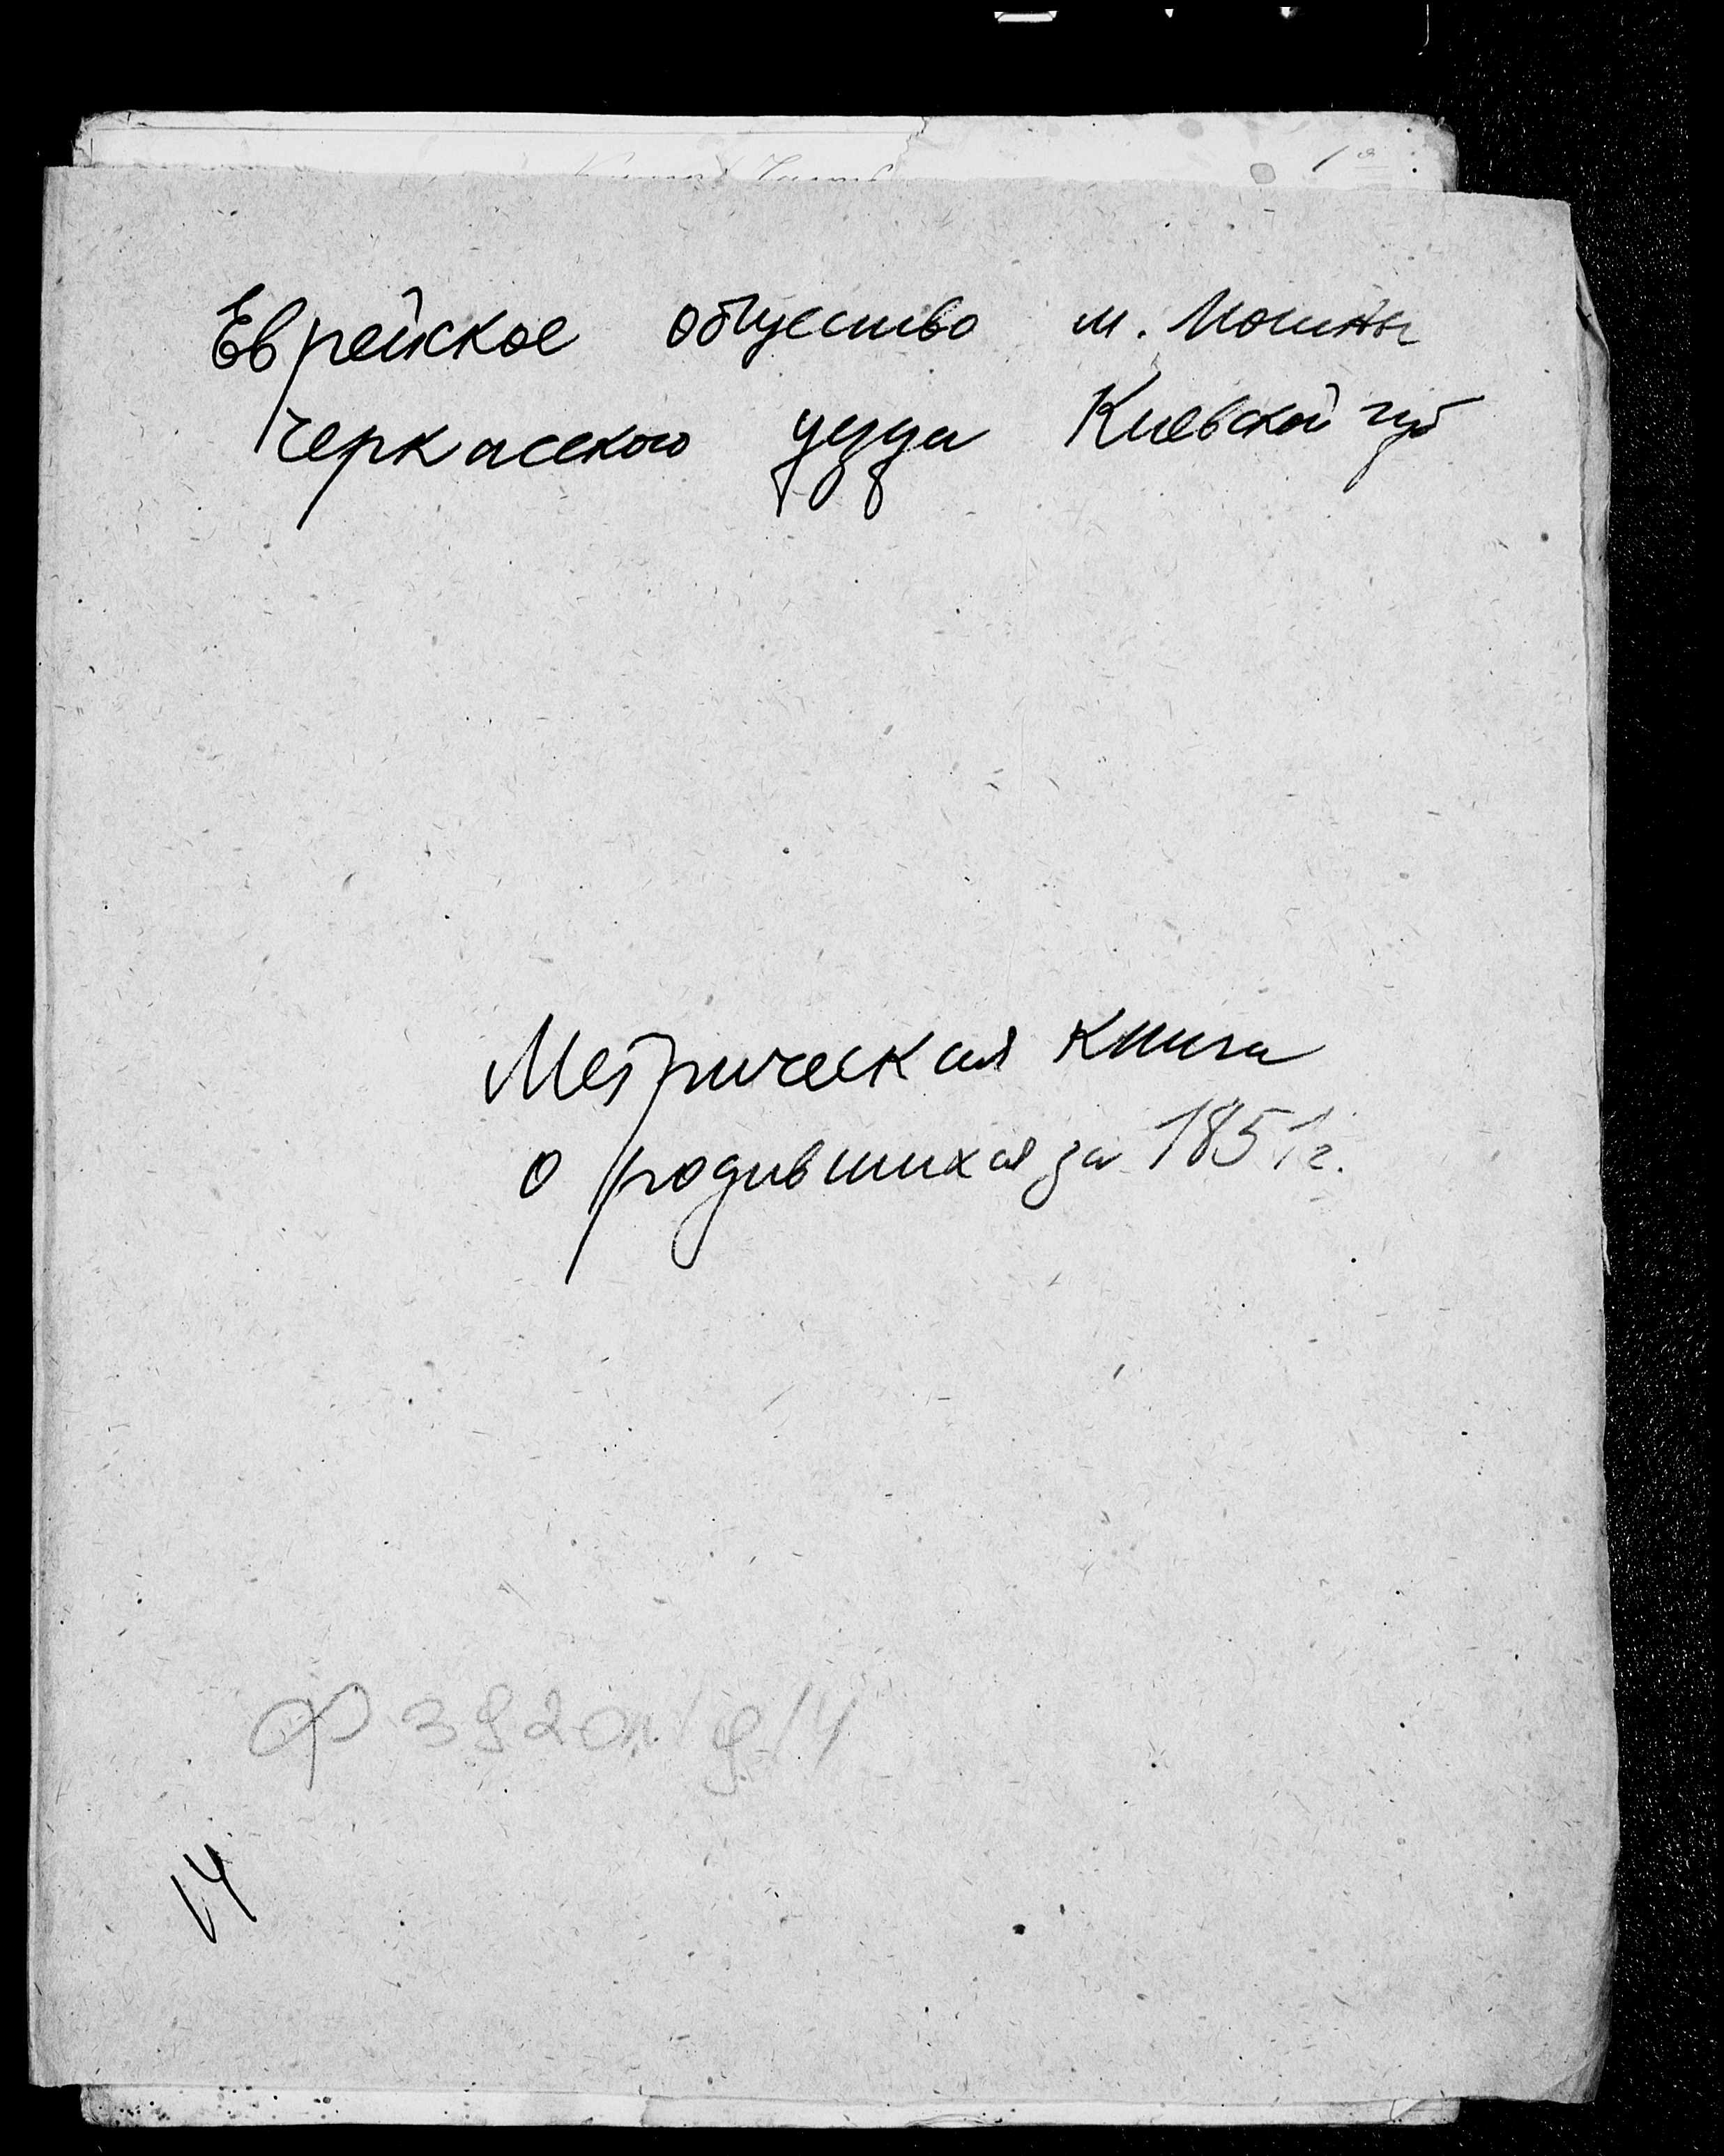 1а
Еврейское общество м. Мошны
Черкасского уезда Киевской губ
Метрическая книга
о родившихся за 1851г.
Ф 392 оп 1 д 14
14